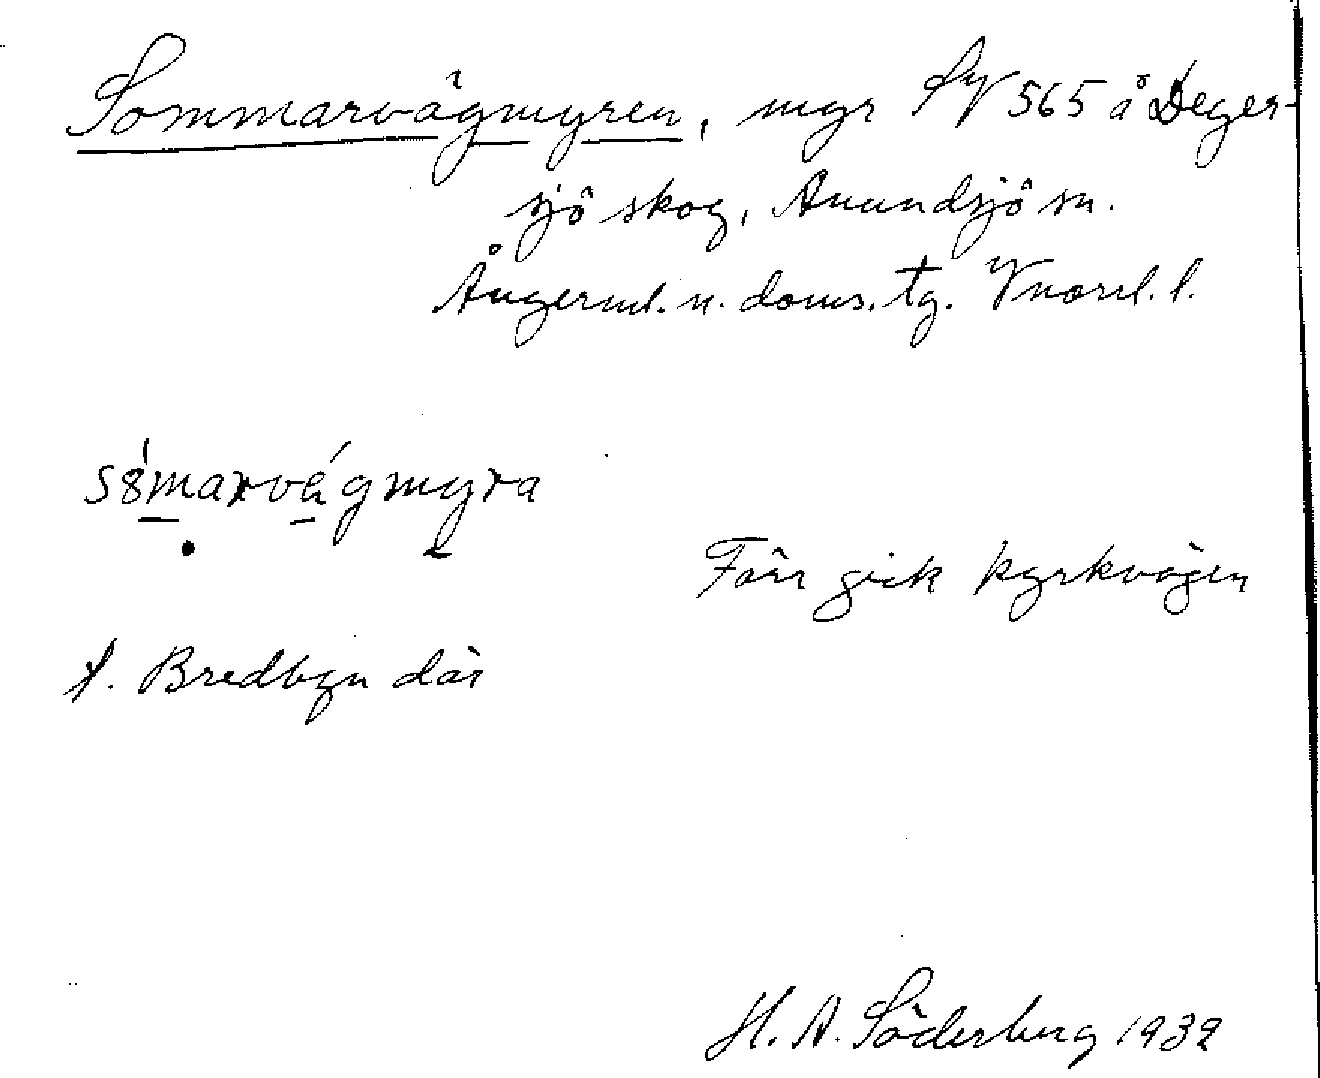 Sommarvägmyren, mgr SV 565 å Deger-
sjö skog, Anundsjö sn.
Ångerml. n. doms. tg. Vnorrl. l.
sòmarvágmyra
Förr gick kyrkvägen
t. Bredbyn där
H. A. Söderberg 1932